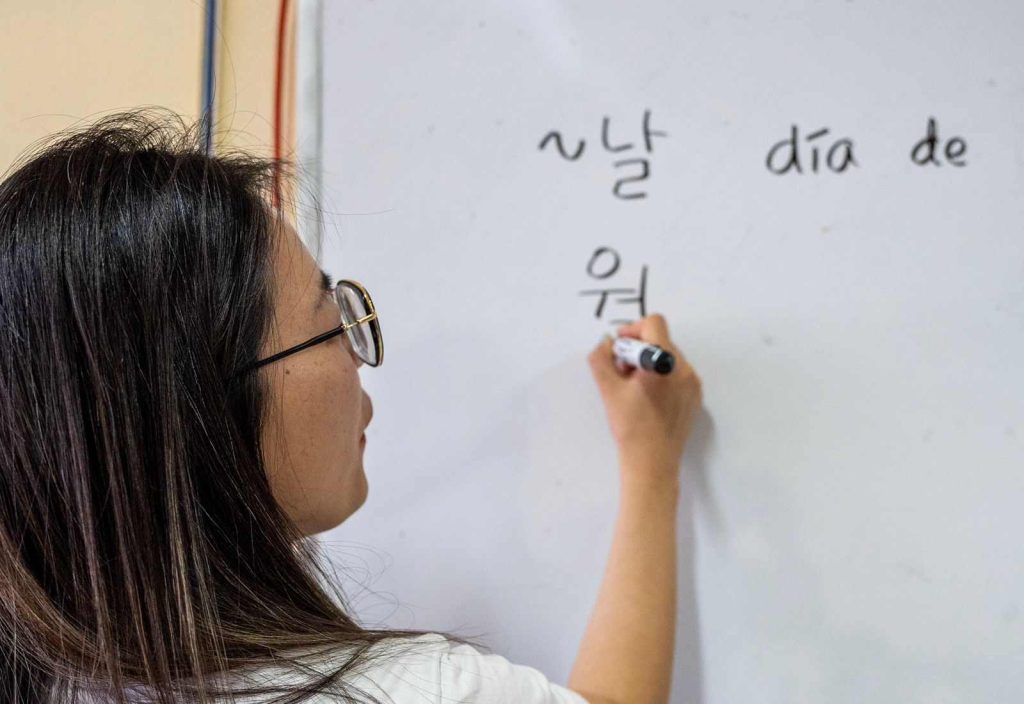 ~날 día de
워